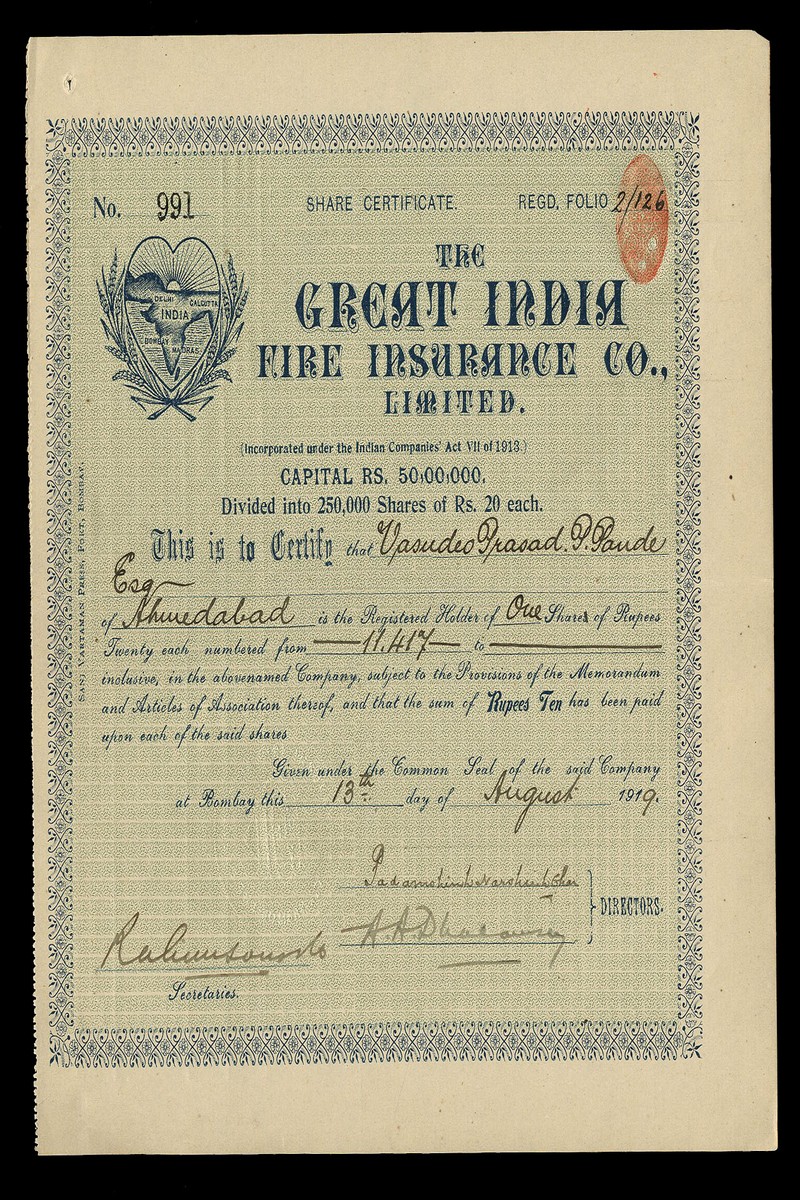 No. 991 SHARE CERTIFICATE. REGD. FOLIO 2/126
DELHI CALCUTTA
INDIA
BOMBAY
MADRAS
THE
GREAT INDIA
FIRE INSURANCE CO.,
LIMITED.
(Incorporated under the Indian Companies' Act VII of 1913.)
CAPITAL RS. 50,00,000.
Divided into 250,000 Shares of Rs. 20 each.
This is to Certify that Vasudeo Prasad. P. Pande
Esq
of Ahmedabad is the Registered Holder of One Share of Rupees
Twenty each numbered from 11,417 to
inclusive, in the abovenamed Company, subject to the Provisions of the Memorandum
and Articles of Association thereof, and that the sum of Rupees Ten has been paid
upon each of the said shares
Given under the Common Seal of the said Company
at Bombay this 13th day of August 1919.
DIRECTORS.
Secretaries.
SANJ VARTAMAN PRESS, FORT, BOMBAY.